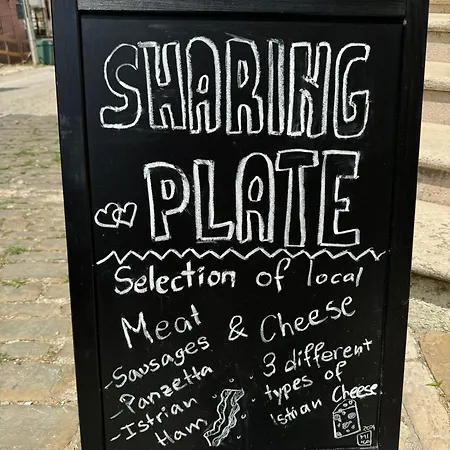 SHARING
PLATE
Selection of local
Meat & Cheese
-Sausages
-Panzetta
-Istrian
Ham
3 different
types of
Istrian Cheese